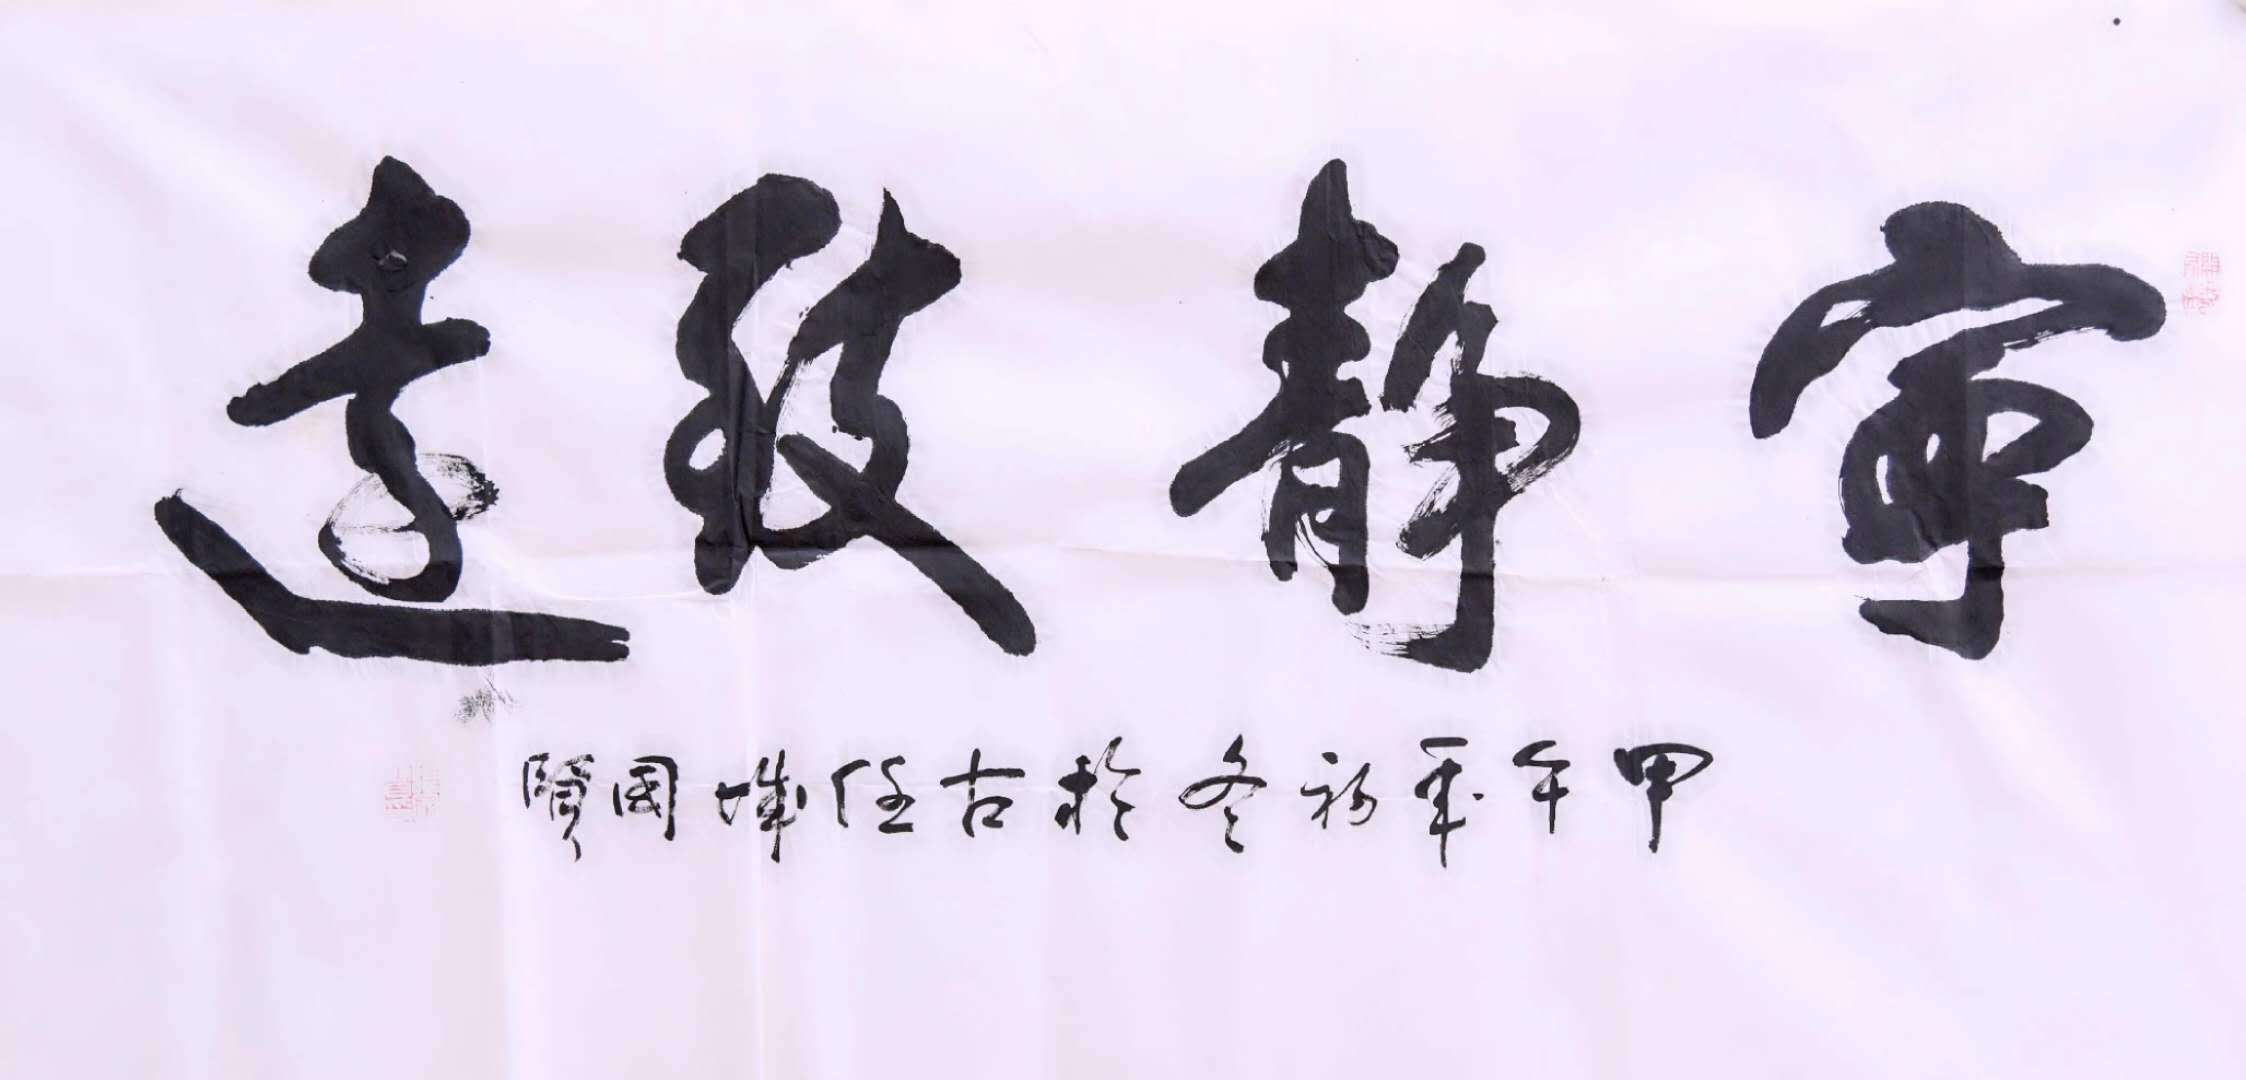 寧靜致遠
甲午年初冬於古任城國賢